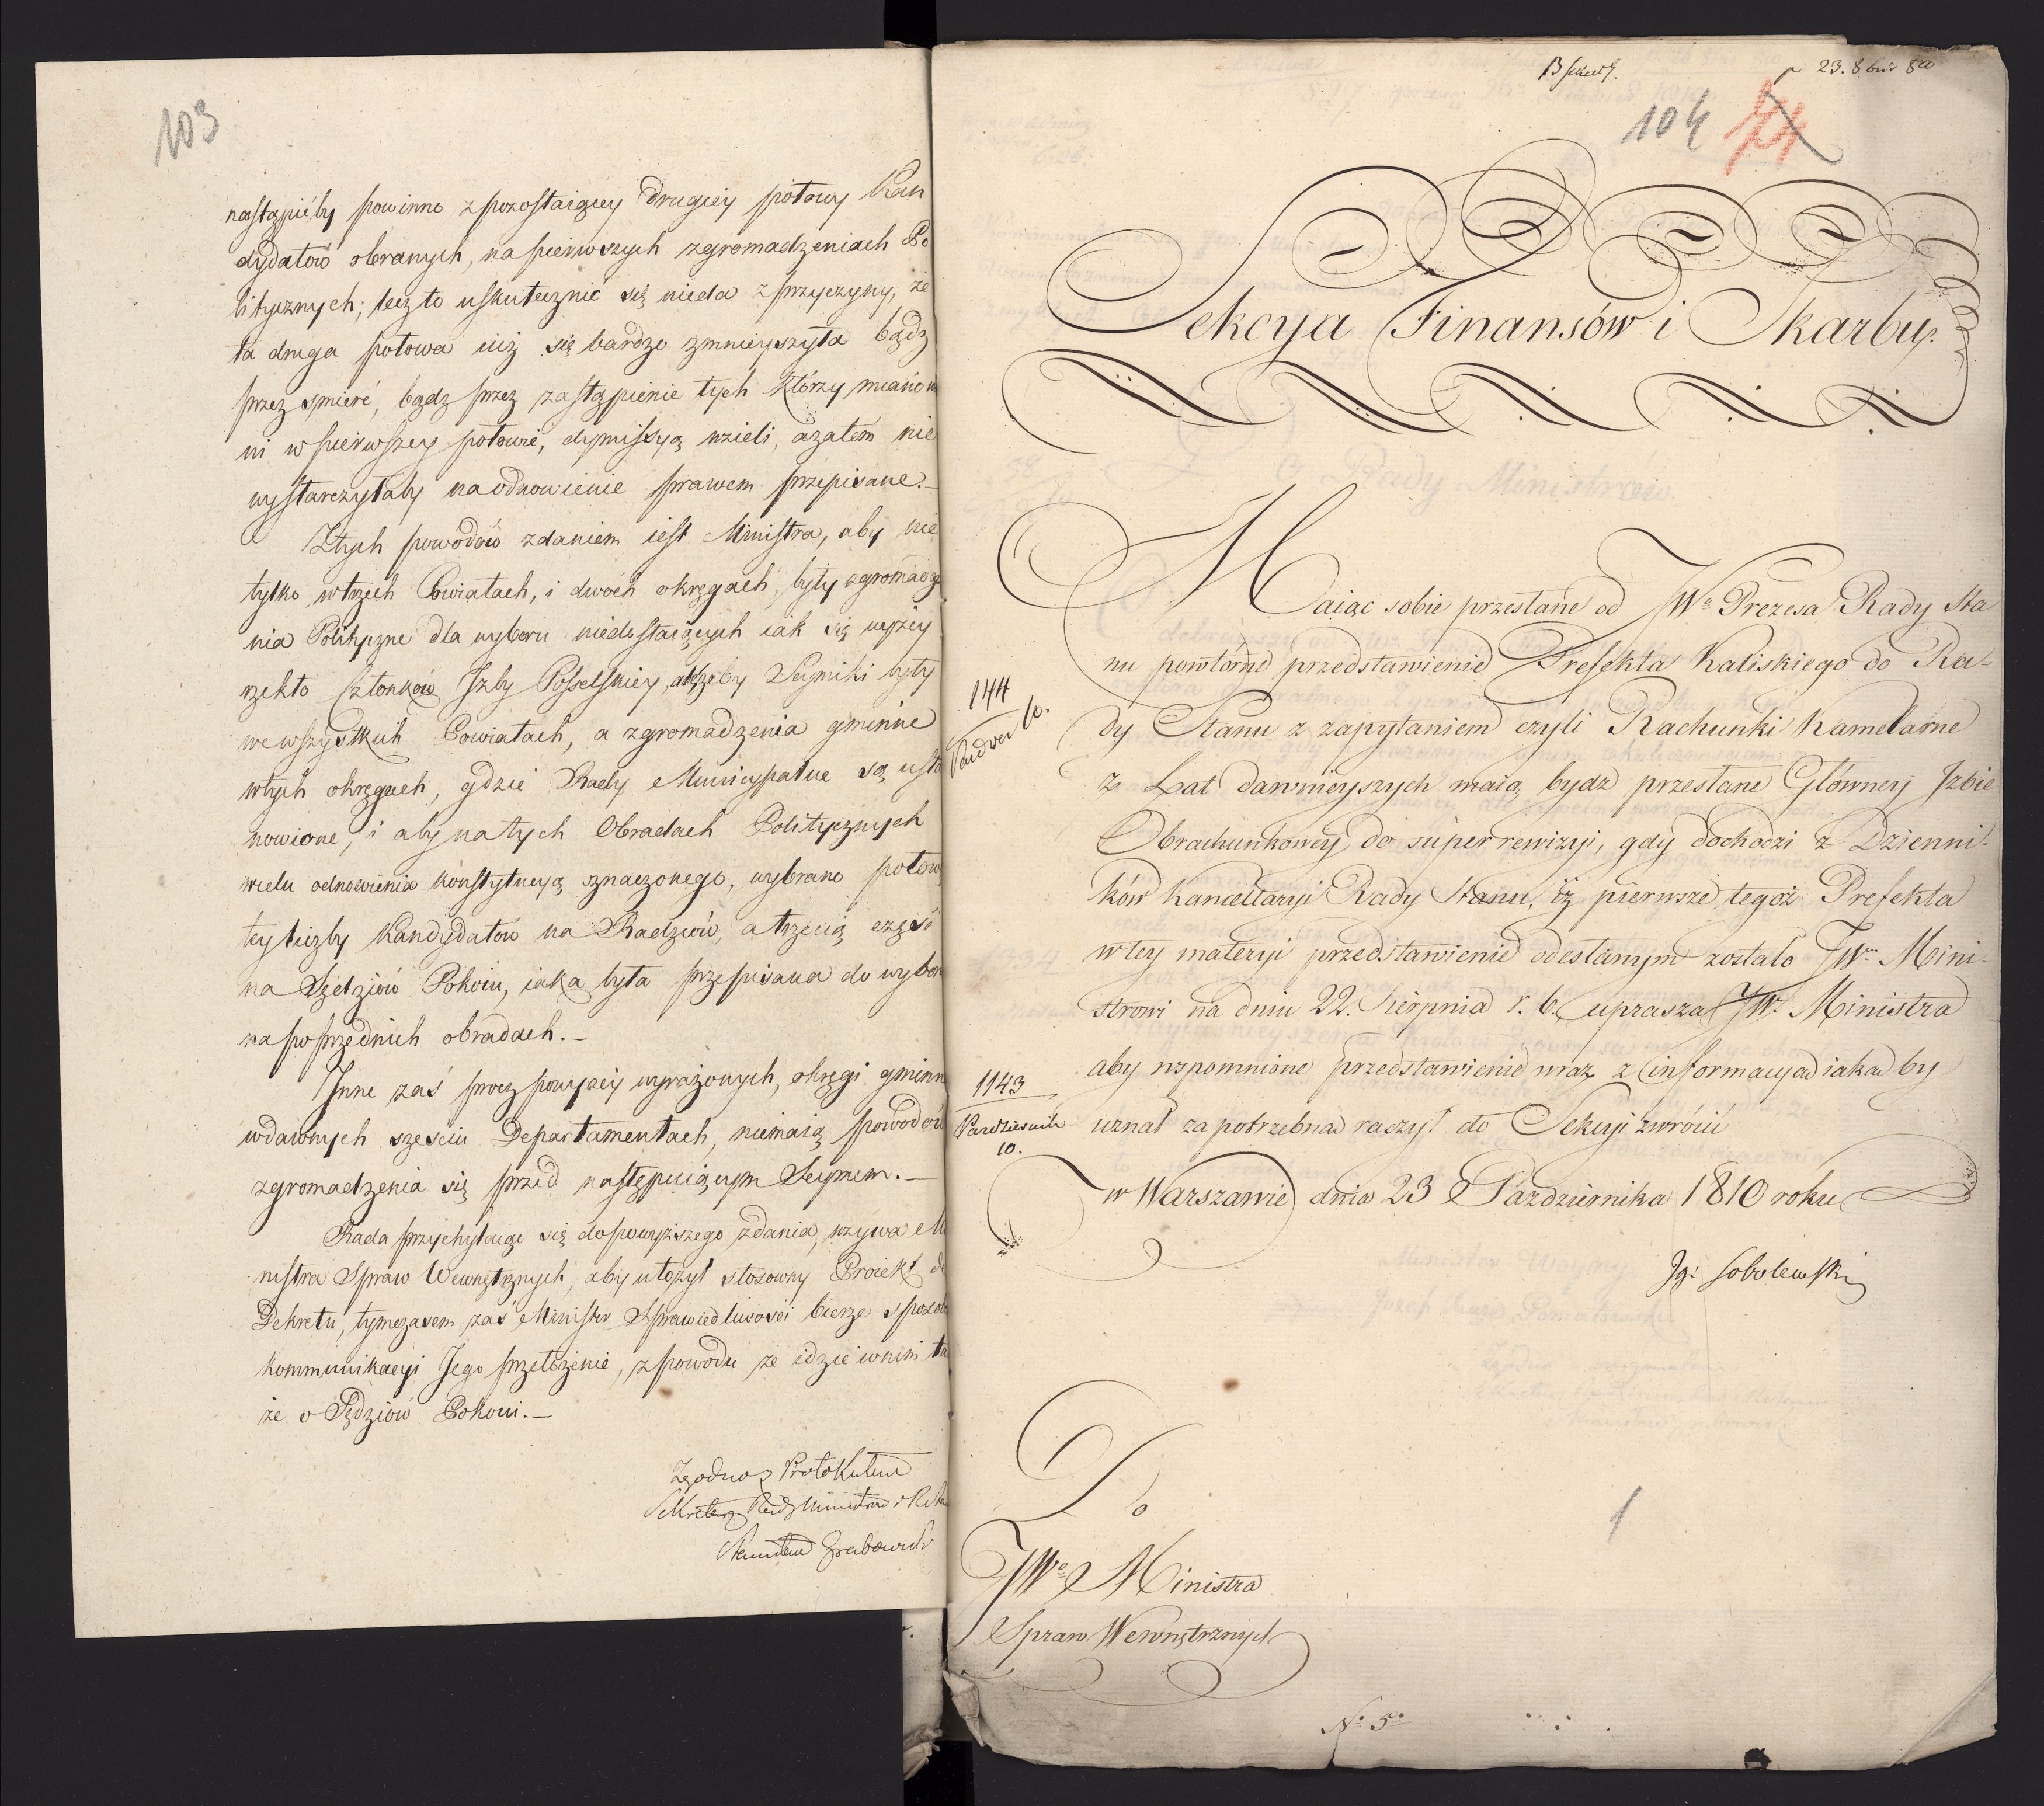 103
nastąpićby powinno z pozostaiącey drugiey połowy Kan
dydatów obranych, na pierwszych zgromadzeniach Po
litycznych; lecz to uskutecznić się nieda z przyczyny, że
ta druga połowa iuż się bardzo zmnieyszyła bądz
przez smierć, bądz przez zastąpienie tych którzy miano
ni w pierwszey połowie, dymissyą wzieli, azatém nie
wystarczyłaby na odnowienie prawem przepisane.—
Ztych powodów zdaniem iest Ministra, aby nie
tylko w trzech Powiatach, i dwóch okręgach, były zgromadze
nia Polityczne dla wyboru niedostaiących iak się wyżey
rzekło Członków Izby Posselskiey, ale żeby Seymiki były
we wszystkich Powiatach, a zgromadzenia gminne
w tych okręgach, gdzie Rady Municypalne są usta
nowione, i aby na tych Obradach Politycznych
wcelu odnowienia konstytucyą oznaczonego, wybrano połow
tey liczby Kandydatów na Radzców, a trzecią część
na Sędziów Pokoiu, iaka była przepisana do wybor
na poprzednich obradach.—
Inne zaś procz powyżey wyrażonych, okręgi gminn
w dawnych sześciu Departamentach, niemaią powodów
zgromadzenia się przed następuiącym Seymem.—
Rada przychylaiąc się do powyższego zdania, wzywa Mi
nistra Spraw Wewnętrznych, aby ułożył stosowny Proiekt do
Dekretu, tymczasem zaś Minister Sprawiedliwości bierze sposob
kommunikacyi Jego przełożenie, z powodu że idzie w nim ta
że o Sędziów Pokoiu.—
Zgodno z Protokułem
Sekretarz Rady Ministrów i R. St
Stanisław Grabowski
23. 8bris 810
104 74
Sekcya Finansów i Skarbu.
Maiąc sobie przesłane od JWo Prezesa Rady Sta
nu powtórne przedstawienie Prefekta Kaliskiego do Ra-
dy Stanu z zapytaniem czyli Rachunki Kamelarne
z Lat dawnieyszych maią bydz przesłane Główney Izbie
Obrachunkowey do superrewizyi, gdy dochodzi z Dzienni-
ków Kancellaryi Rady Stanu, iż pierwsze tegoż Prefekta
w tey materyi przedstawienie odesłanym zostało JWmu Mini-
strowi na dniu 22. Sierpnia r. b. uprasza JWo Ministra
aby wspomnione przedstawienie wraz z informacyą iaką by
uznał za potrzebną raczył do Sekcyi zwrócić
w Warszawie dnia 23 Października 1810 roku
Ig: Sobolewski
144
1143
Pazdziernika
10.
Do
JWo Ministra
Spraw Wewnętrznych
1
No 5o